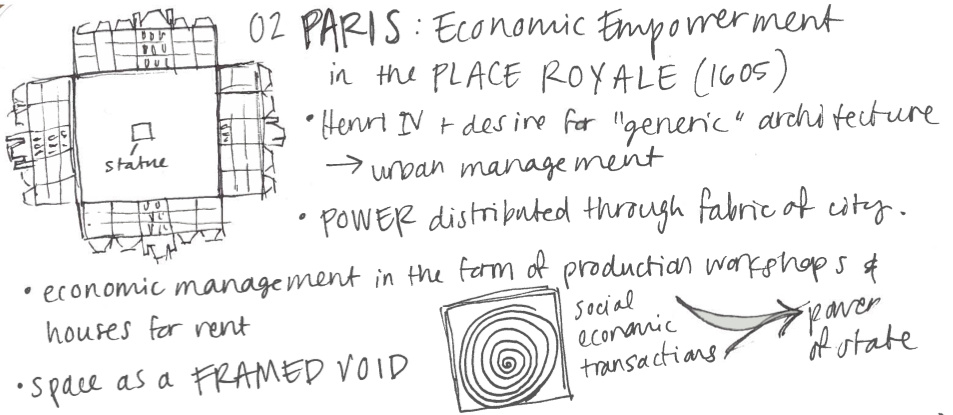 02 PARIS: Economic Empowerment
in the PLACE ROYALE (1605)
• Henri IV + desire for "generic" architecture
→ urban management
statue
• POWER distributed through fabric of city.
• economic management in the form of production workshops &
houses for rent
• space as a FRAMED VOID
social
economic
transactions
power
of state